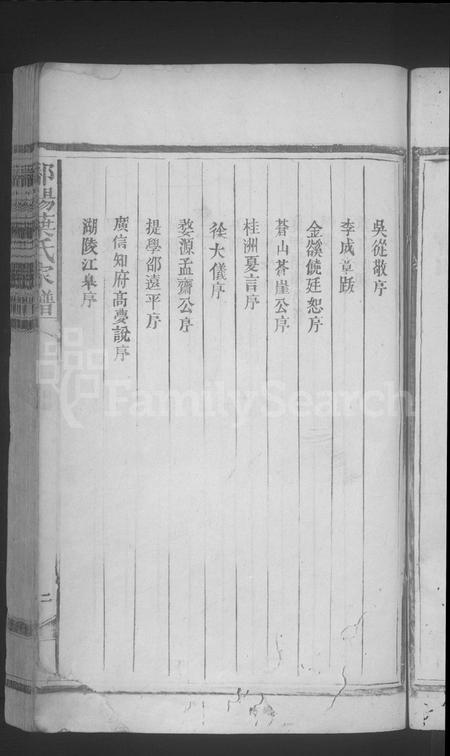 吳從敬序
李成章跋
金谿饒廷恕序
蒼山蒼崖公序
桂洲夏言序
徐大儀序
婺源孟齋公序
提學邵遠平序
廣信知府高夢說序
湖陵江皐序
氏家譜
二
FamilySearch